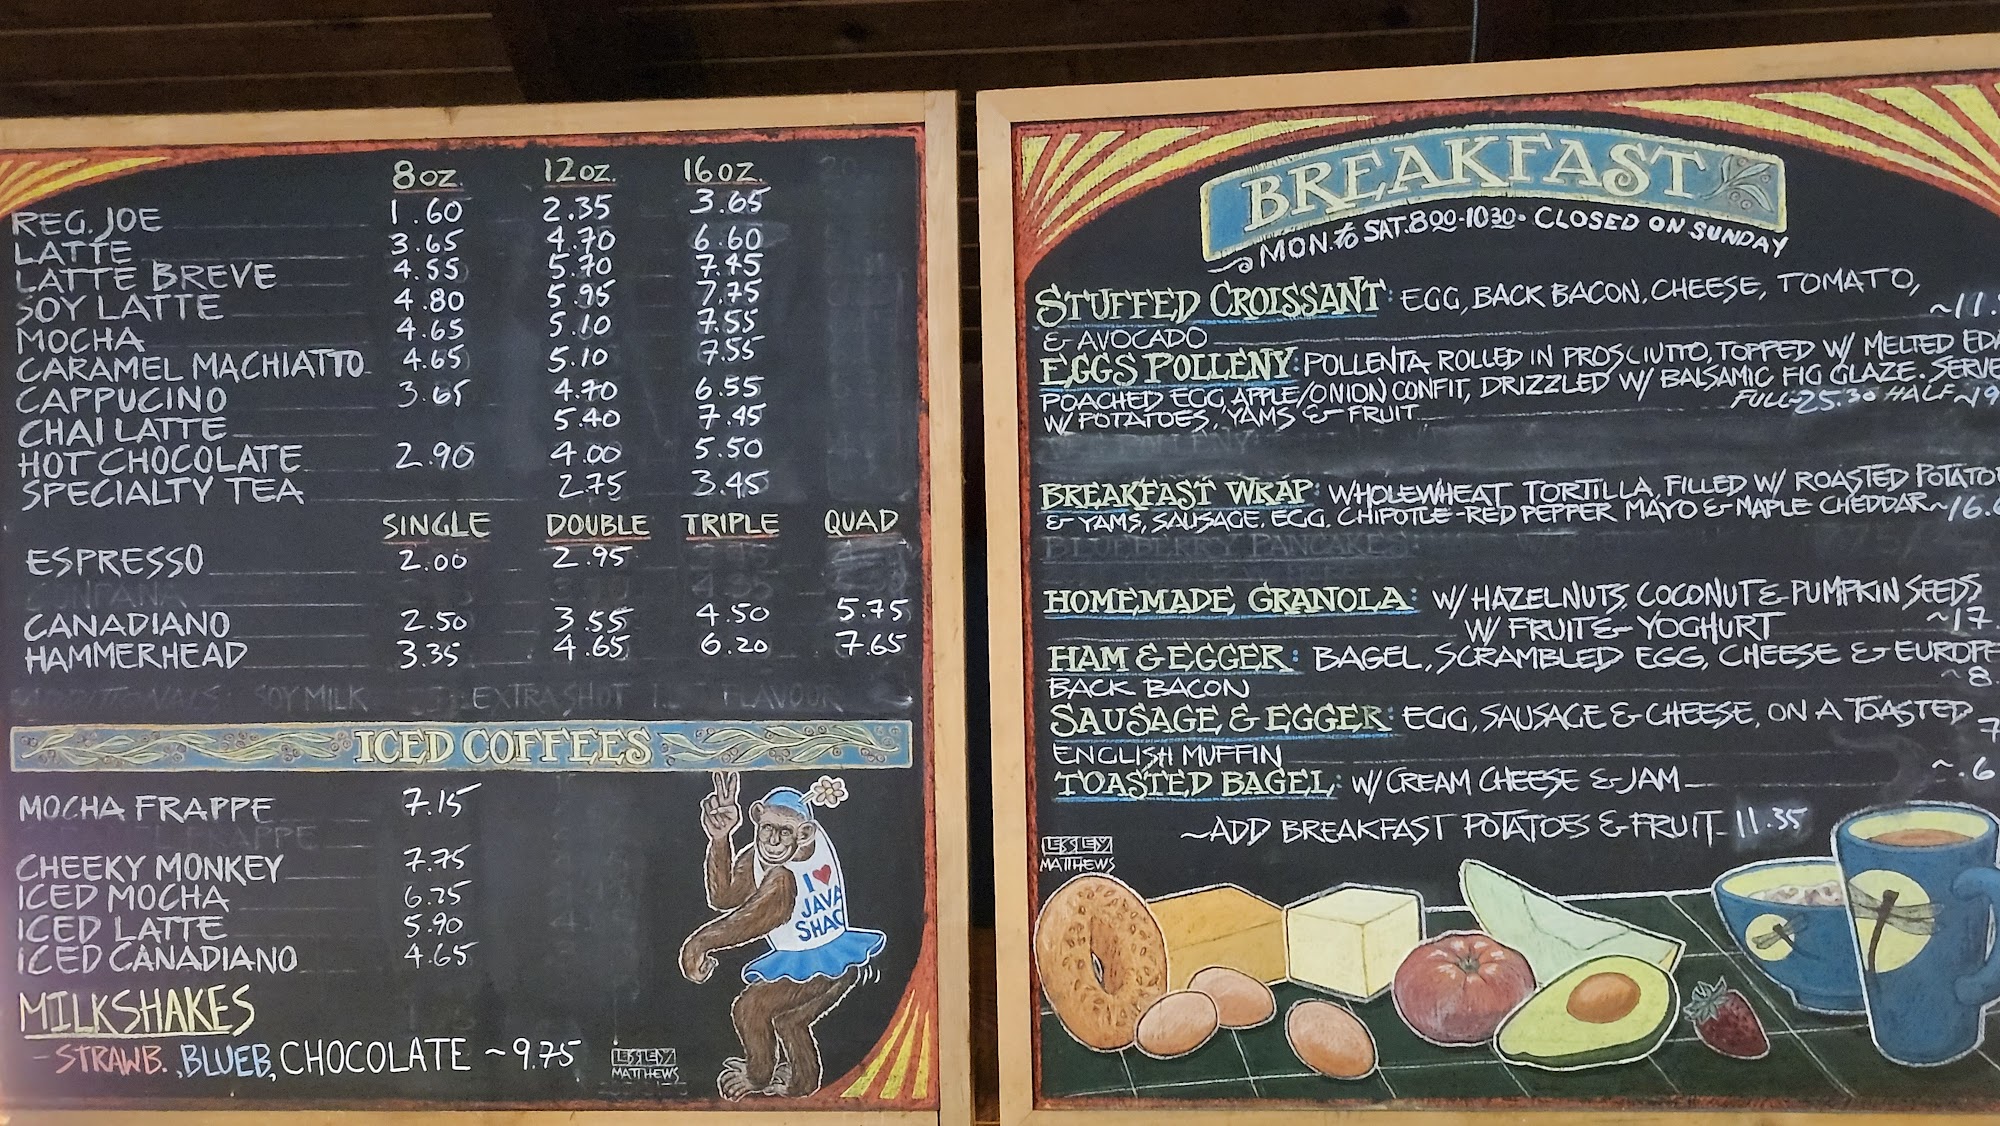 8 OZ. 12 OZ. 16 OZ.
REG. JOE 1.60 2.35 3.65
LATTE 3.65 4.70 6.60
LATTE BREVE 4.55 5.70 7.45
SOY LATTE 4.80 5.95 7.75
MOCHA 4.65 5.10 7.55
CARAMEL MACHIATTO 4.65 5.10 7.55
CAPPUCINO 3.65 4.70 6.55
CHAI LATTE 5.40 7.45
HOT CHOCOLATE 2.90 4.00 5.50
SPECIALTY TEA 2.75 3.45
SINGLE DOUBLE TRIPLE QUAD
ESPRESSO 2.00 2.95
CANADIANO 2.50 3.55 4.50 5.75
HAMMERHEAD 3.35 4.65 6.20 7.65
SOY MILK EXTRA SHOT FLAVOUR
ICED COFFEES
MOCHA FRAPPE 7.15
CHEEKY MONKEY 7.75
ICED MOCHA 6.25
ICED LATTE 5.90
ICED CANADIANO 4.65
MILKSHAKES
- STRAWB., BLUEB, CHOCOLATE ~ 9.75
I ♥
JAVA
SHAC
LESLEY
MATTHEWS
BREAKFAST
MON. to SAT. 8:00-10:30 • CLOSED ON SUNDAY
STUFFED CROISSANT: EGG, BACK BACON, CHEESE, TOMATO,
& AVOCADO ~11.
EGGS POLLENY: POLLENTA ROLLED IN PROSCIUTTO, TOPPED W/ MELTED EDA
POACHED EGG, APPLE/ONION CONFIT, DRIZZLED W/ BALSAMIC FIG GLAZE. SERVE
W/ POTATOES, YAMS & FRUIT FULL~25.30 HALF~19
BREAKFAST WRAP: WHOLEWHEAT TORTILLA, FILLED W/ ROASTED POTATO
& YAMS, SAUSAGE, EGG, CHIPOTLE-RED PEPPER MAYO & MAPLE CHEDDAR~16.
BLUEBERRY PANCAKES:
HOMEMADE GRANOLA: W/ HAZELNUTS, COCONUT & PUMPKIN SEEDS
W/ FRUIT & YOGHURT ~17.
HAM & EGGER: BAGEL, SCRAMBLED EGG, CHEESE & EUROPE
BACK BACON ~8.
SAUSAGE & EGGER: EGG, SAUSAGE & CHEESE, ON A TOASTED
ENGLISH MUFFIN 7
TOASTED BAGEL: W/ CREAM CHEESE & JAM ~.6
~ADD BREAKFAST POTATOES & FRUIT 11.35
LESLEY
MATTHEWS